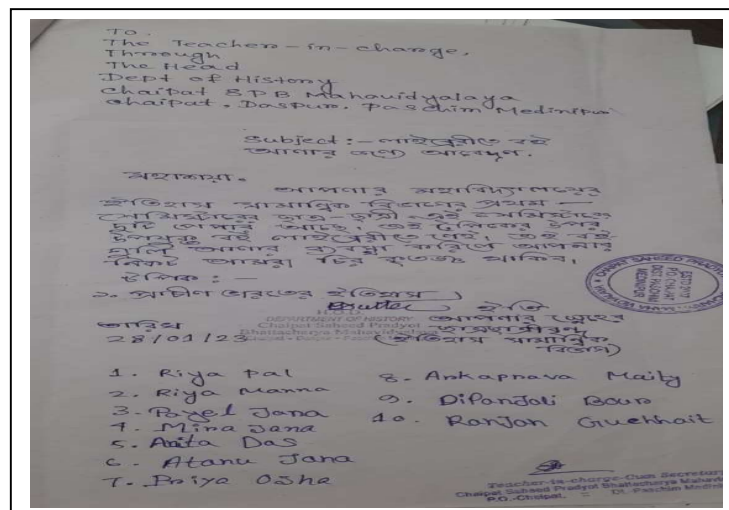 To.
The Teacher-in-charge,
Through
The Head
Dept of History
Chaipat SPB Mahavidyalaya
Chaipat. Daspur. Paschim Medinipur
Subject:- লাইব্রেরীতে বই
আনার জন্যে আবেদন.
মহাশয়া.
আপনার মহাবিদ্যালয়ের
ইতিহাস সাম্মানিক বিভাগের প্রথম -
সেমিস্টারের ছাত্র-ছাত্রী। এই সেমিস্টারে
দুটি পেপার আছে, এই টপিকের উপর
উপযুক্ত বই লাইব্রেরীতে নেই, এই বই
গুলি আনার ব্যবস্থা করিলে আপনার
নিকট আমরা চির কৃতজ্ঞ থাকিব।
টপিক :-
১. প্রাচীন ভারতের ইতিহাস
ইতি
H.O.D.
DEPARTMENT OF HISTORY
আপনার স্নেহের
Chaipat Saheed Pradyot
Bhattacharya Mahavidyalaya
ছাত্রছাত্রীবৃন্দ
তারিখ
28/01/23
(ইতিহাস সাম্মানিক
বিভাগ)
1. Riya Pal
2. Riya Manna
3. Payel Jana
4. Mina Jana
5. Anita Das
6. Atanu Jana
7. Priya Ojha
8. Ankapnava Maity
9. Dipanjali Bour
10. Ranjan Guchhait
Teacher-in-charge-Cum Secretary
Chaipat Saheed Pradyot Bhattacharya Mahavi
P.O.-Chaipat. Dt.-Paschim Medini